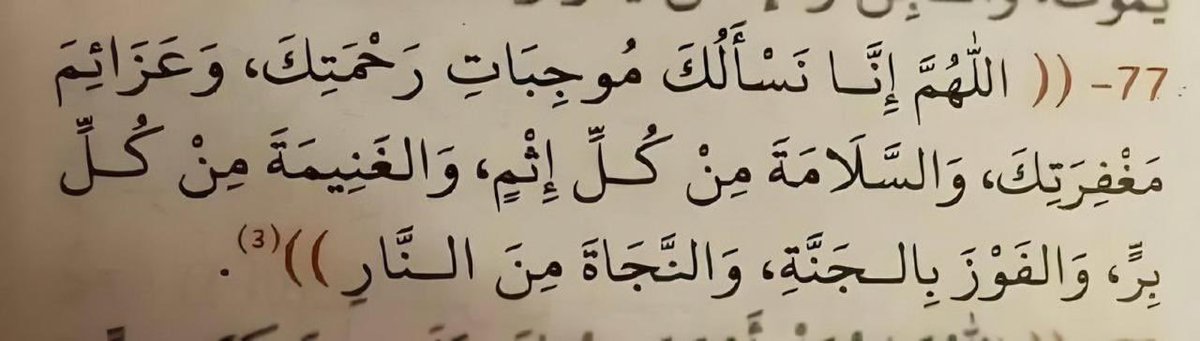 77- (( اللّٰهُمَّ إِنَّـا نَسْأَلُكَ مُوجِبَاتِ رَحْمَتِكَ، وَعَزَائِمَ
مَغْفِرَتِكَ، وَالسَّلَامَةَ مِنْ كُـلِّ إِثْمٍ، وَالغَنِيمَةَ مِنْ كُـلِّ
بِرٍّ، وَالفَوْزَ بِالـجَنَّةِ، وَالنَّجَاةَ مِنَ الـنَّارِ ))(3).